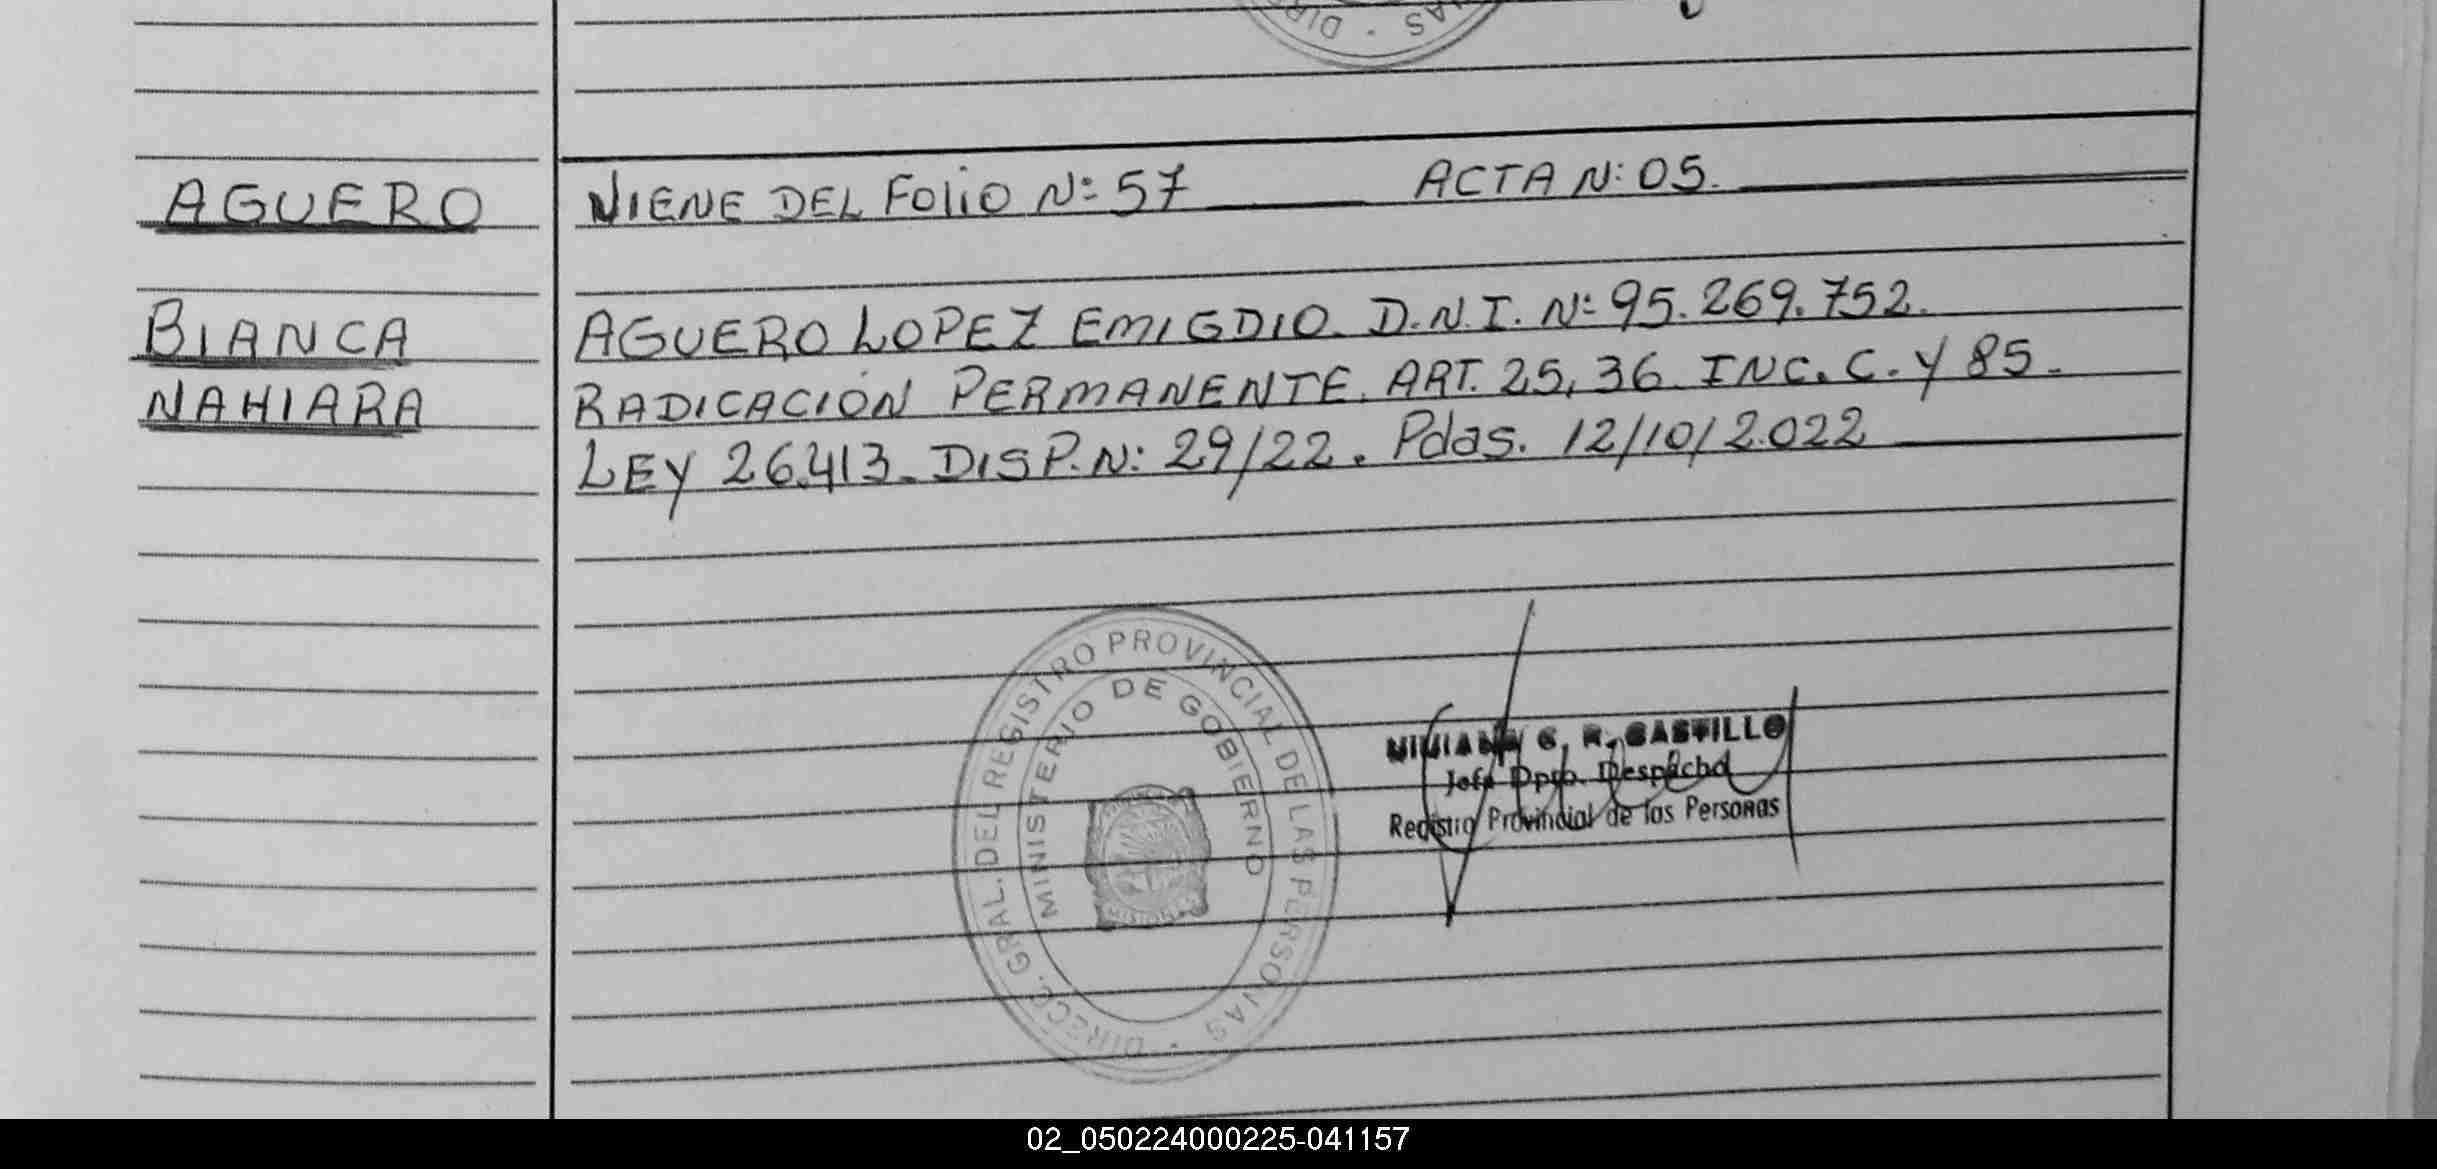 DIR · AS
AGUERO
VIENE DEL FOLIO N: 57 ACTA N: 05.
BIANCA
NAHIARA
AGUERO LOPEZ EMIGDIO. D.N.I. N: 95.269.752.
RADICACIÓN PERMANENTE. ART. 25, 36. INC. C. Y 85.
LEY 26.413. DISP. N: 29/22. Pdas. 12/10/2.022
DIRECC. GRAL. DEL REGISTRO PROVINCIAL DE LAS PERSONAS ·
MINISTERIO DE GOBIERNO
MISIONES
VIVIANA G. R. CASTILLO
Jefe Dpto. Despacho
Registro Provincial de las Personas
02_050224000225-041157